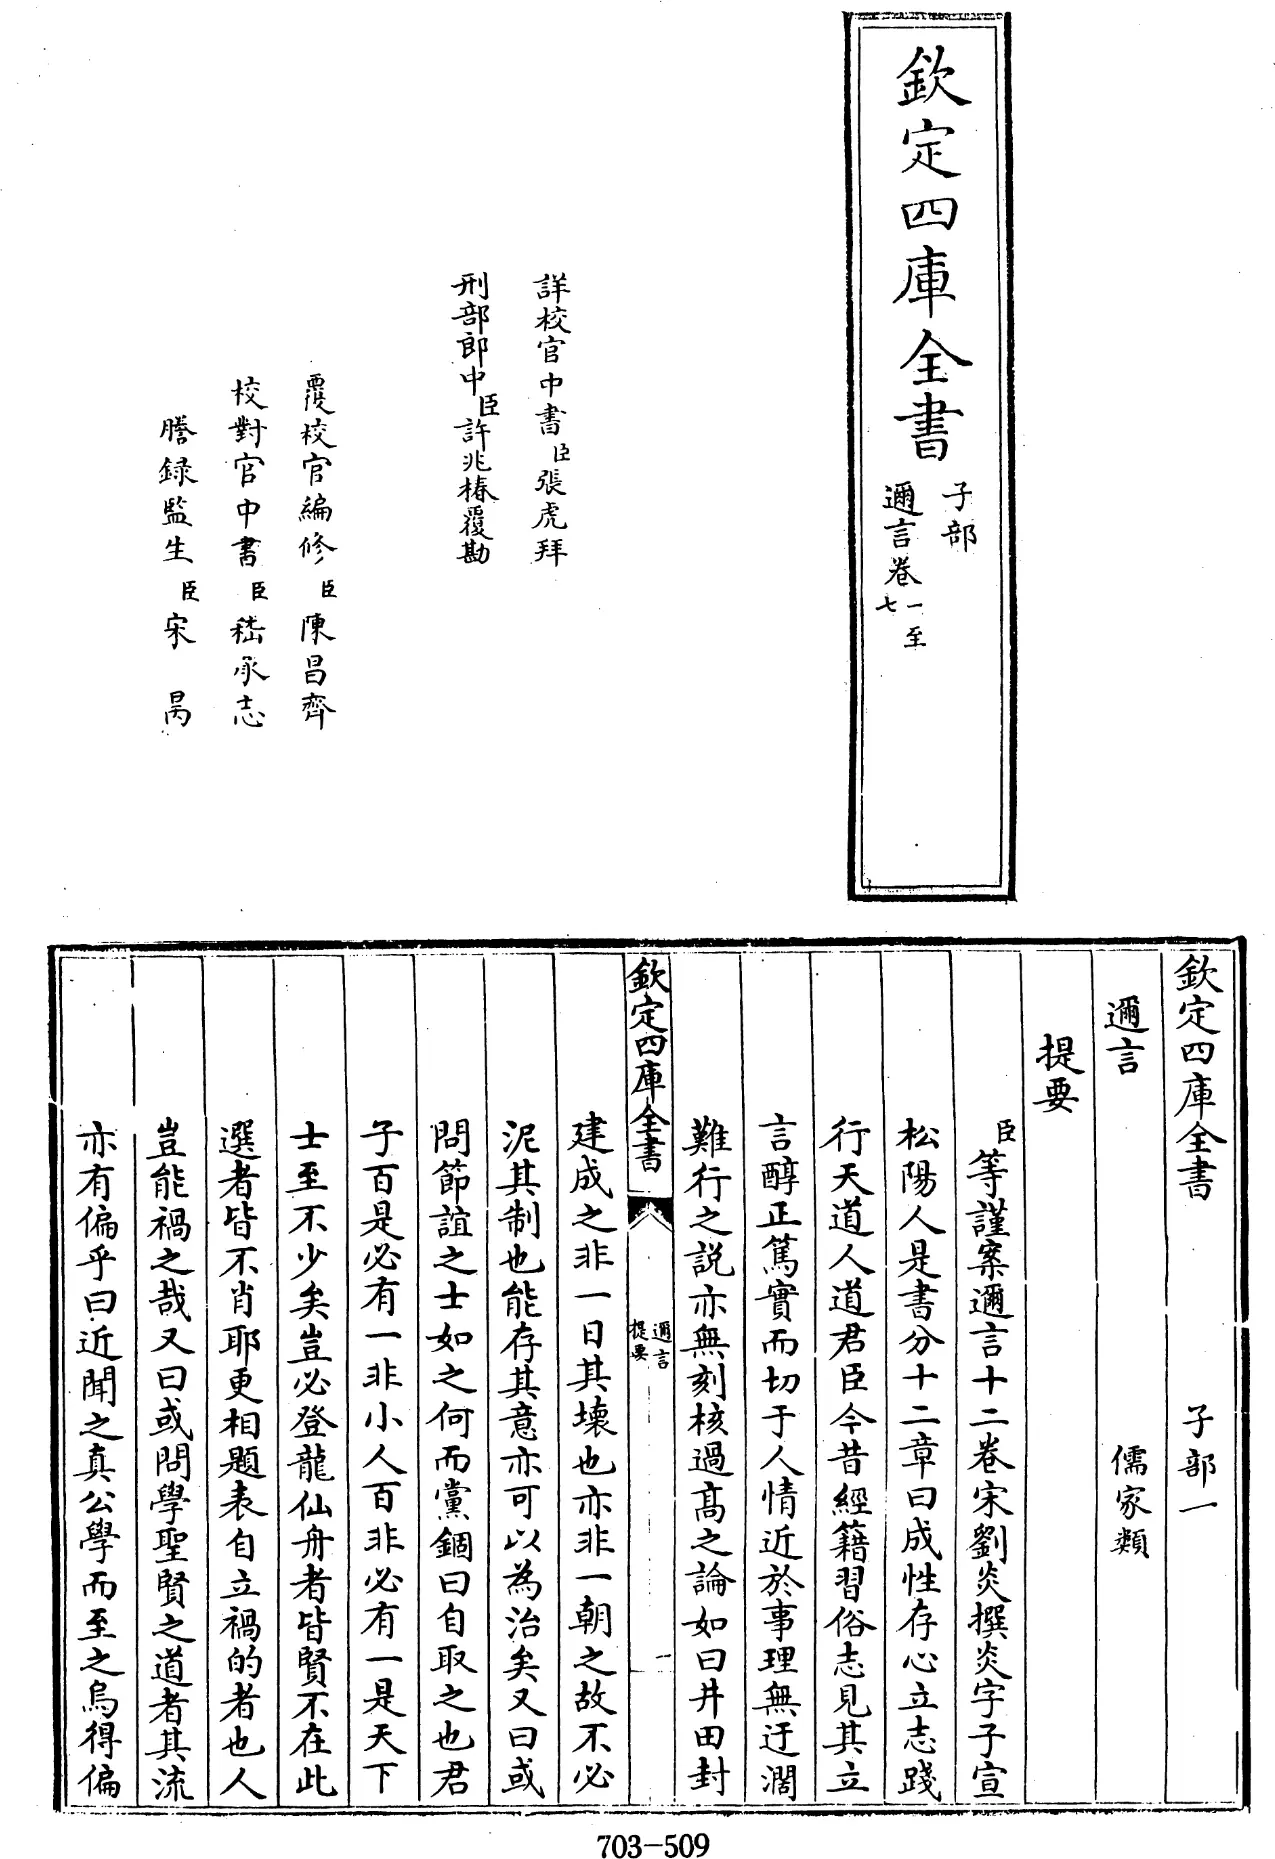 欽定四庫全書
子部
邇言卷一至七
詳校官中書臣張虎拜
刑部郎中臣許兆椿覆勘
覆校官編修臣陳昌齊
校對官中書臣嵇承志
謄錄監生臣宋昺
欽定四庫全書 子部一
邇言 儒家類
提要
臣等謹案邇言十二卷宋劉炎撰炎字子宣
松陽人是書分十二章曰成性存心立志踐
行天道人道君臣今昔經籍習俗志見其立
言醇正篤實而切于人情近於事理無迂濶
難行之説亦無刻核過髙之論如曰井田封
欽定四庫全書
邇言
提要
一
建成之非一日其壞也亦非一朝之故不必
泥其制也能存其意亦可以為治矣又曰或
問節誼之士如之何而黨錮曰自取之也君
子百是必有一非小人百非必有一是天下
士至不少矣豈必登龍仙舟者皆賢不在此
選者皆不肖耶更相題表自立禍的者也人
豈能禍之哉又曰或問學聖賢之道者其流
亦有偏乎曰近聞之真公學而至之烏得偏
703-509